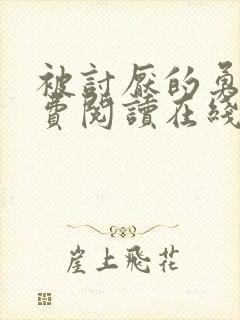 被討厭的勇
費閱讀在綫
崖上飛花